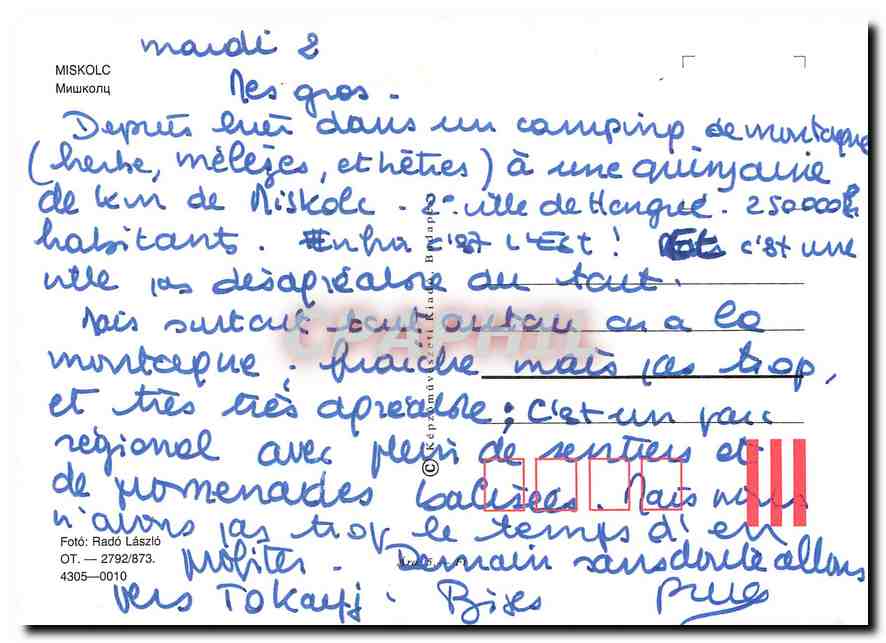 mardi 2
MISKOLC
Мишколц
Mes gros.
Depuis hier dans un camping de montagne
(herbe, mélèzes, et hêtres) à une quinzaine
de km de Miskolc. 2e ville de Hongrie. 250000
habitants. Enfin c'est L'EST! Mais c'est une
ville pas désagréable du tout.
Mais surtout tout autour on a la
montagne, fraîche mais pas trop,
et très très agréable; c'est un parc
régional avec plein de sentiers et
de promenades balisées. Mais nous
n'avons pas trop le temps d'en
profiter. Demain sans doute allons
vers Tokaij. Bises
© Képzőművészeti Kiadó, Budapest
CPAPHIL
Fotó: Radó László
OT. — 2792/873.
4305—0010